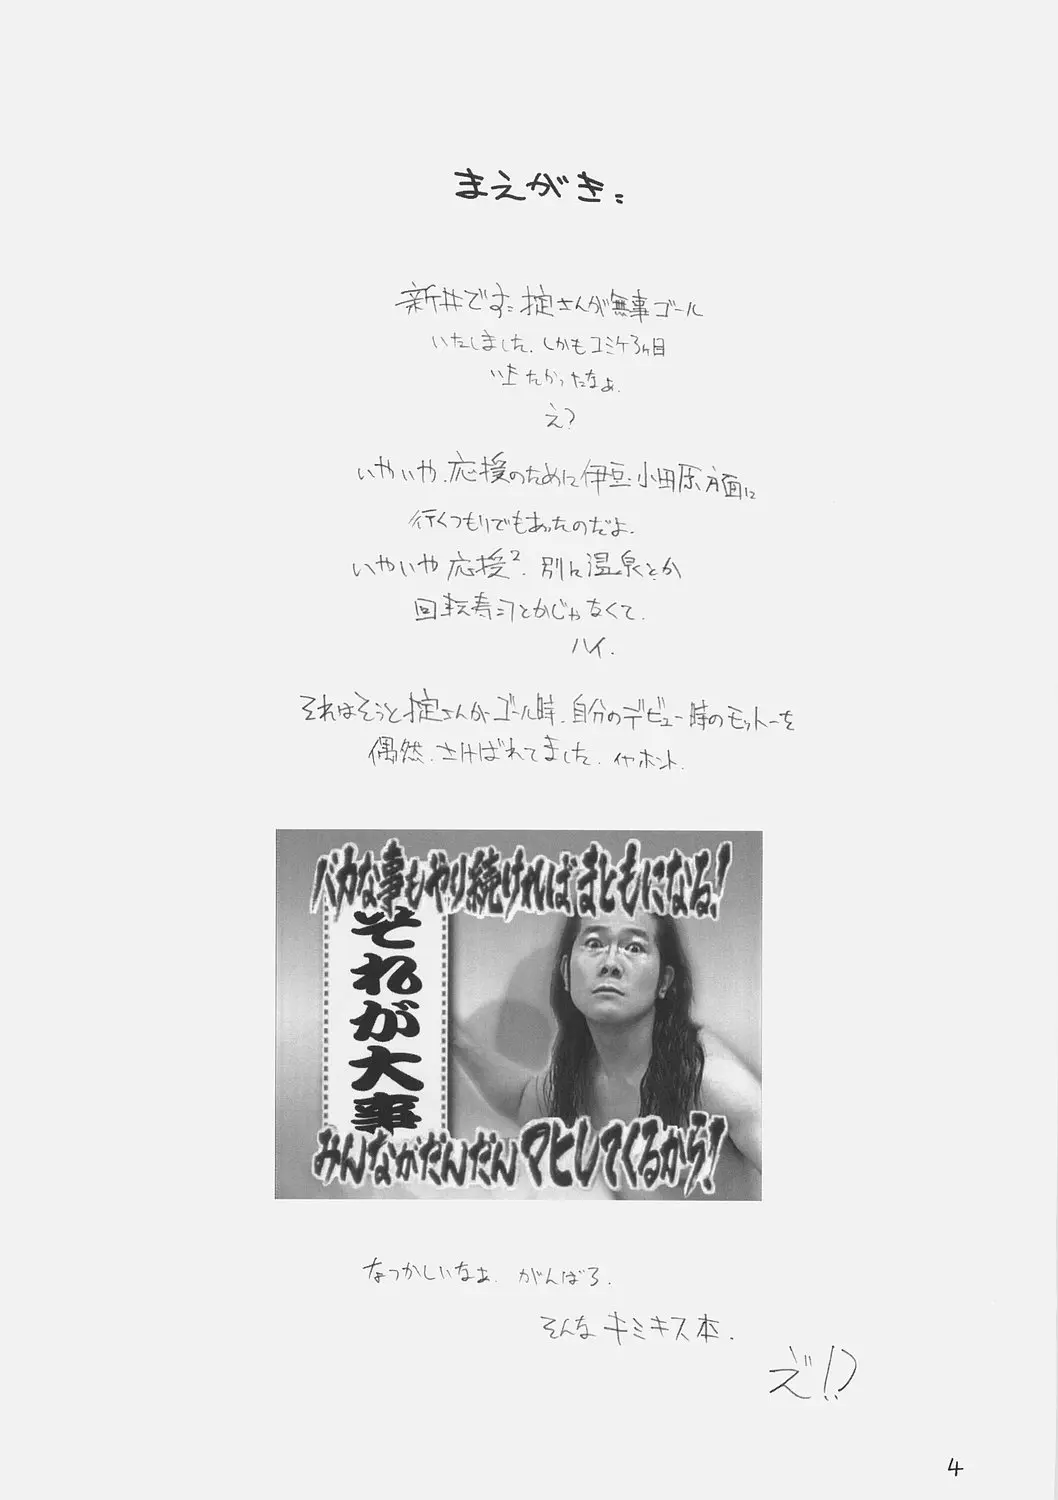 まえがき：
新井です。掟さんが無事ゴール
いたしました。しかもコミケ3日目
いきたかったなぁ。
え？
いやいや、応援のために伊豆・小田原方面に
行くつもりでもあったのだよ。
いやいや応援²。別に温泉とか
回転寿司とかじゃなくて。
ハイ．
それはそうと掟さんがゴール時、自分のデビュー時のモットーを
偶然、さけばれてました。イヤホント．
バカな事もやり続ければまともになる！
それが大事
みんながだんだんマヒしてくるから！
なつかしいなぁ。がんばろ．
そんなキミキス本．
え゛!?
4